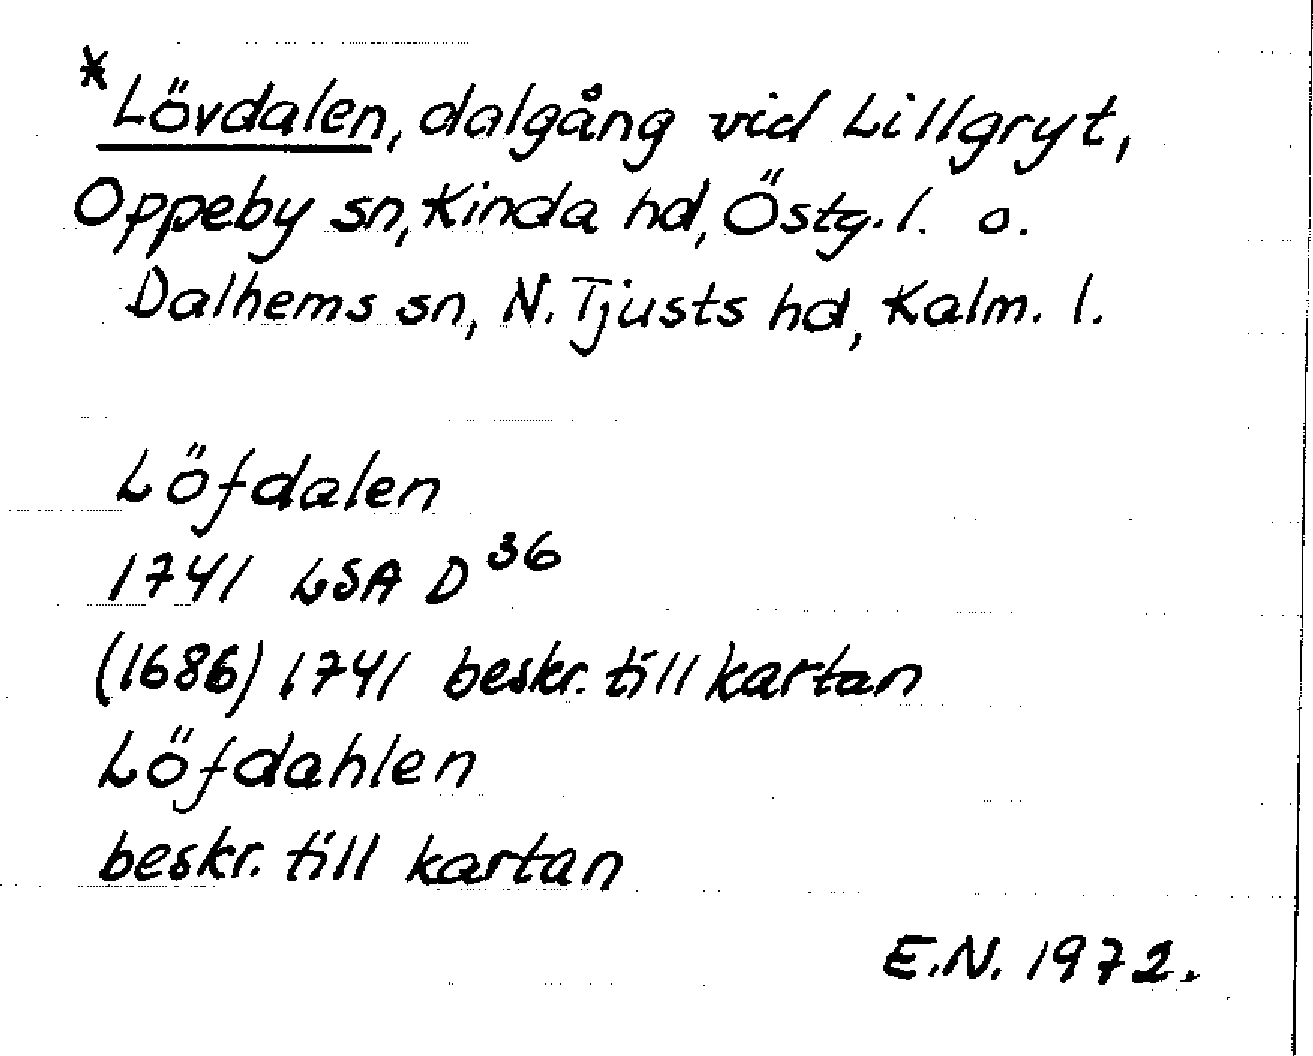 *Lövdalen, dalgång vid Lillgryt,
Oppeby sn, Kinda hd, Östg. l. o.
Dalhems sn, N. Tjusts hd, Kalm. l.
Löfdalen
1741 LSA D 36
(1686) 1741 beskr. till kartan
Löfdahlen
beskr. till kartan
E.N. 1972.